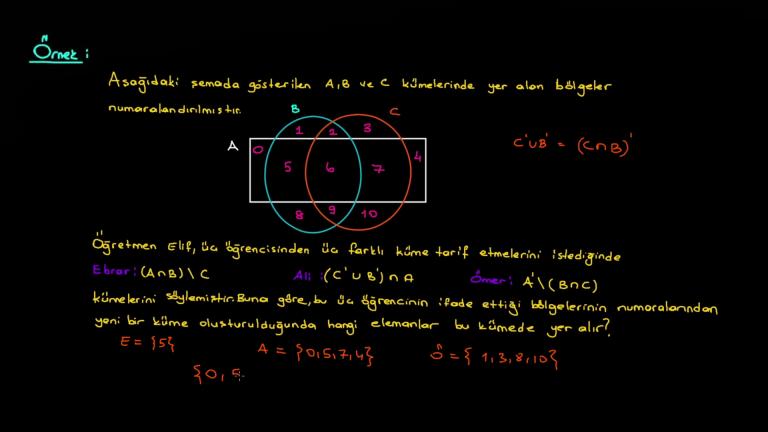 Örnek:
Aşağıdaki şemada gösterilen A,B ve C kümelerinde yer alan bölgeler
numaralandırılmıştır.
B
C
1 2 3
A
0
4
5 6 7
8 9 10
C'∪B' = (C∩B)'
Öğretmen Elif, üç öğrencisinden üç farklı küme tarif etmelerini istediğinde
Ebrar: (A∩B) \ C
Ali: (C' ∪ B') ∩ A
Ömer: A' \ (B∩C)
kümelerini söylemiştir. Buna göre, bu üç öğrencinin ifade ettiği bölgelerinin numaralarından
yeni bir küme oluşturulduğunda hangi elemanlar bu kümede yer alır?
E = {5}
A = {0,5,7,4}
Ö = { 1,3,8,10}
{0, 5